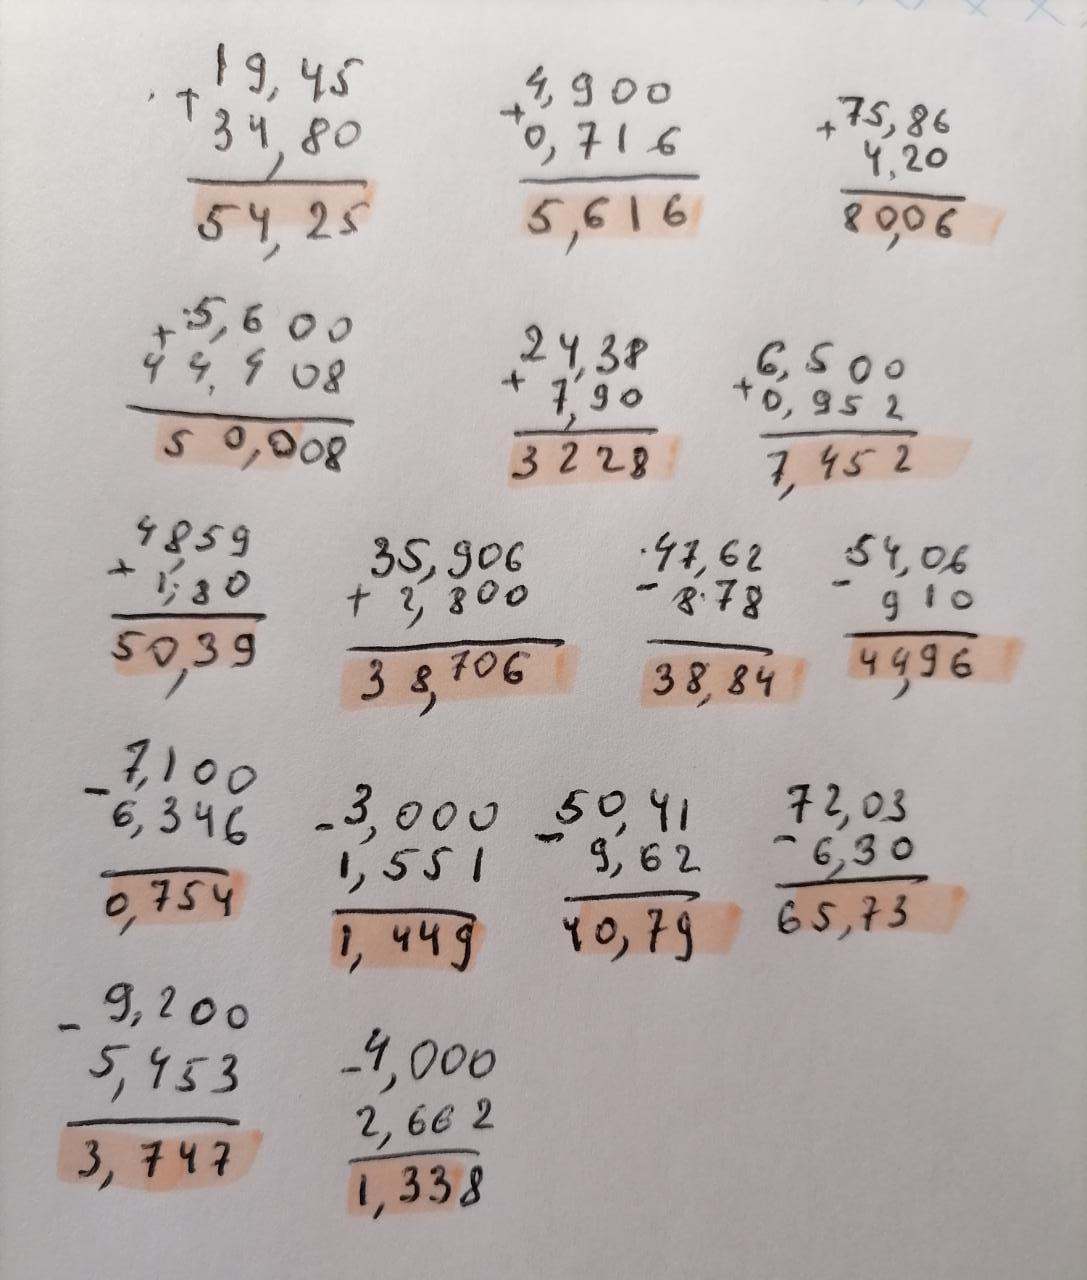 19,45
+
34,80
54,25
4,900
+
0,716
5,616
75,86
+
4,20
80,06
5,600
+
44,408
50,008
24,38
+
7,90
3228
6,500
+
0,952
7,452
48,59
+
1,80
50,39
35,906
+ 2,800
38,706
47,62
- 8.78
38,84
54,06
-
910
44,96
7,100
-
6,346
0,754
-3,000
1,551
1,449
50,41
-
9,62
40,79
72,03
- 6,30
65,73
9,200
-
5,453
3,747
-4,000
2,662
1,338